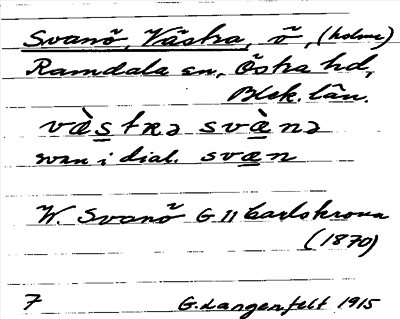 Svanö, Västra, ö, (holme)
Ramdala sn, Östra hd,
Blek. län.
væ̀stʀə svæ̀nə
svan i dial. svæn
W. Svanö G 11 Carlskrona
(1870)
7 G. Langenfelt 1915